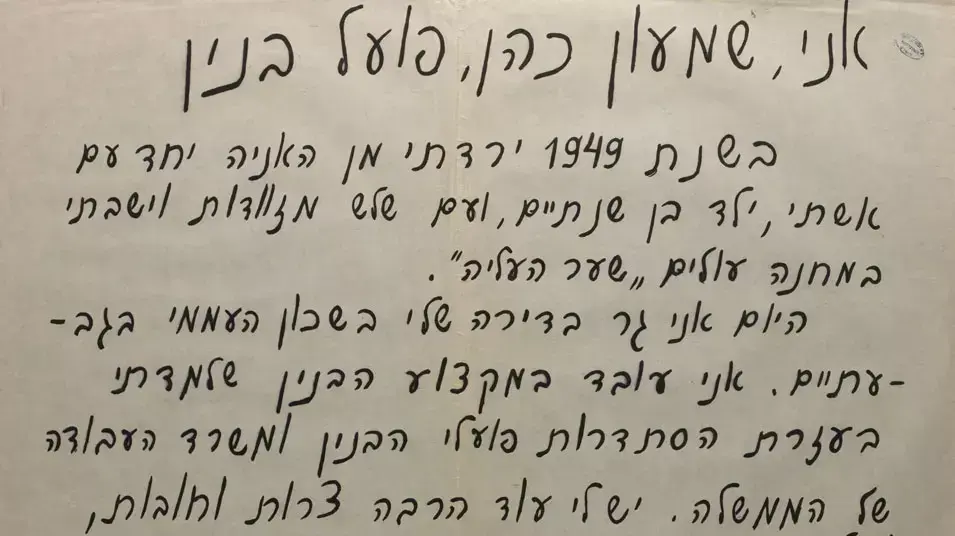 אני, שמעון כהן, פועל בנין
בשנת 1949 ירדתי מן האניה יחד עם
אשתי, ילד בן שנתיים, ועם שלש מזוודות וישבתי
במחנה עולים „שער העליה".
היום אני גר בדירה שלי בשכון העממי בגב-
-עתיים. אני עובד במקצוע הבנין שלמדתי
בעזרת הסתדרות פועלי הבנין ומשרד העבודה
של הממשלה. יש לי עוד הרבה צרות וחובות,